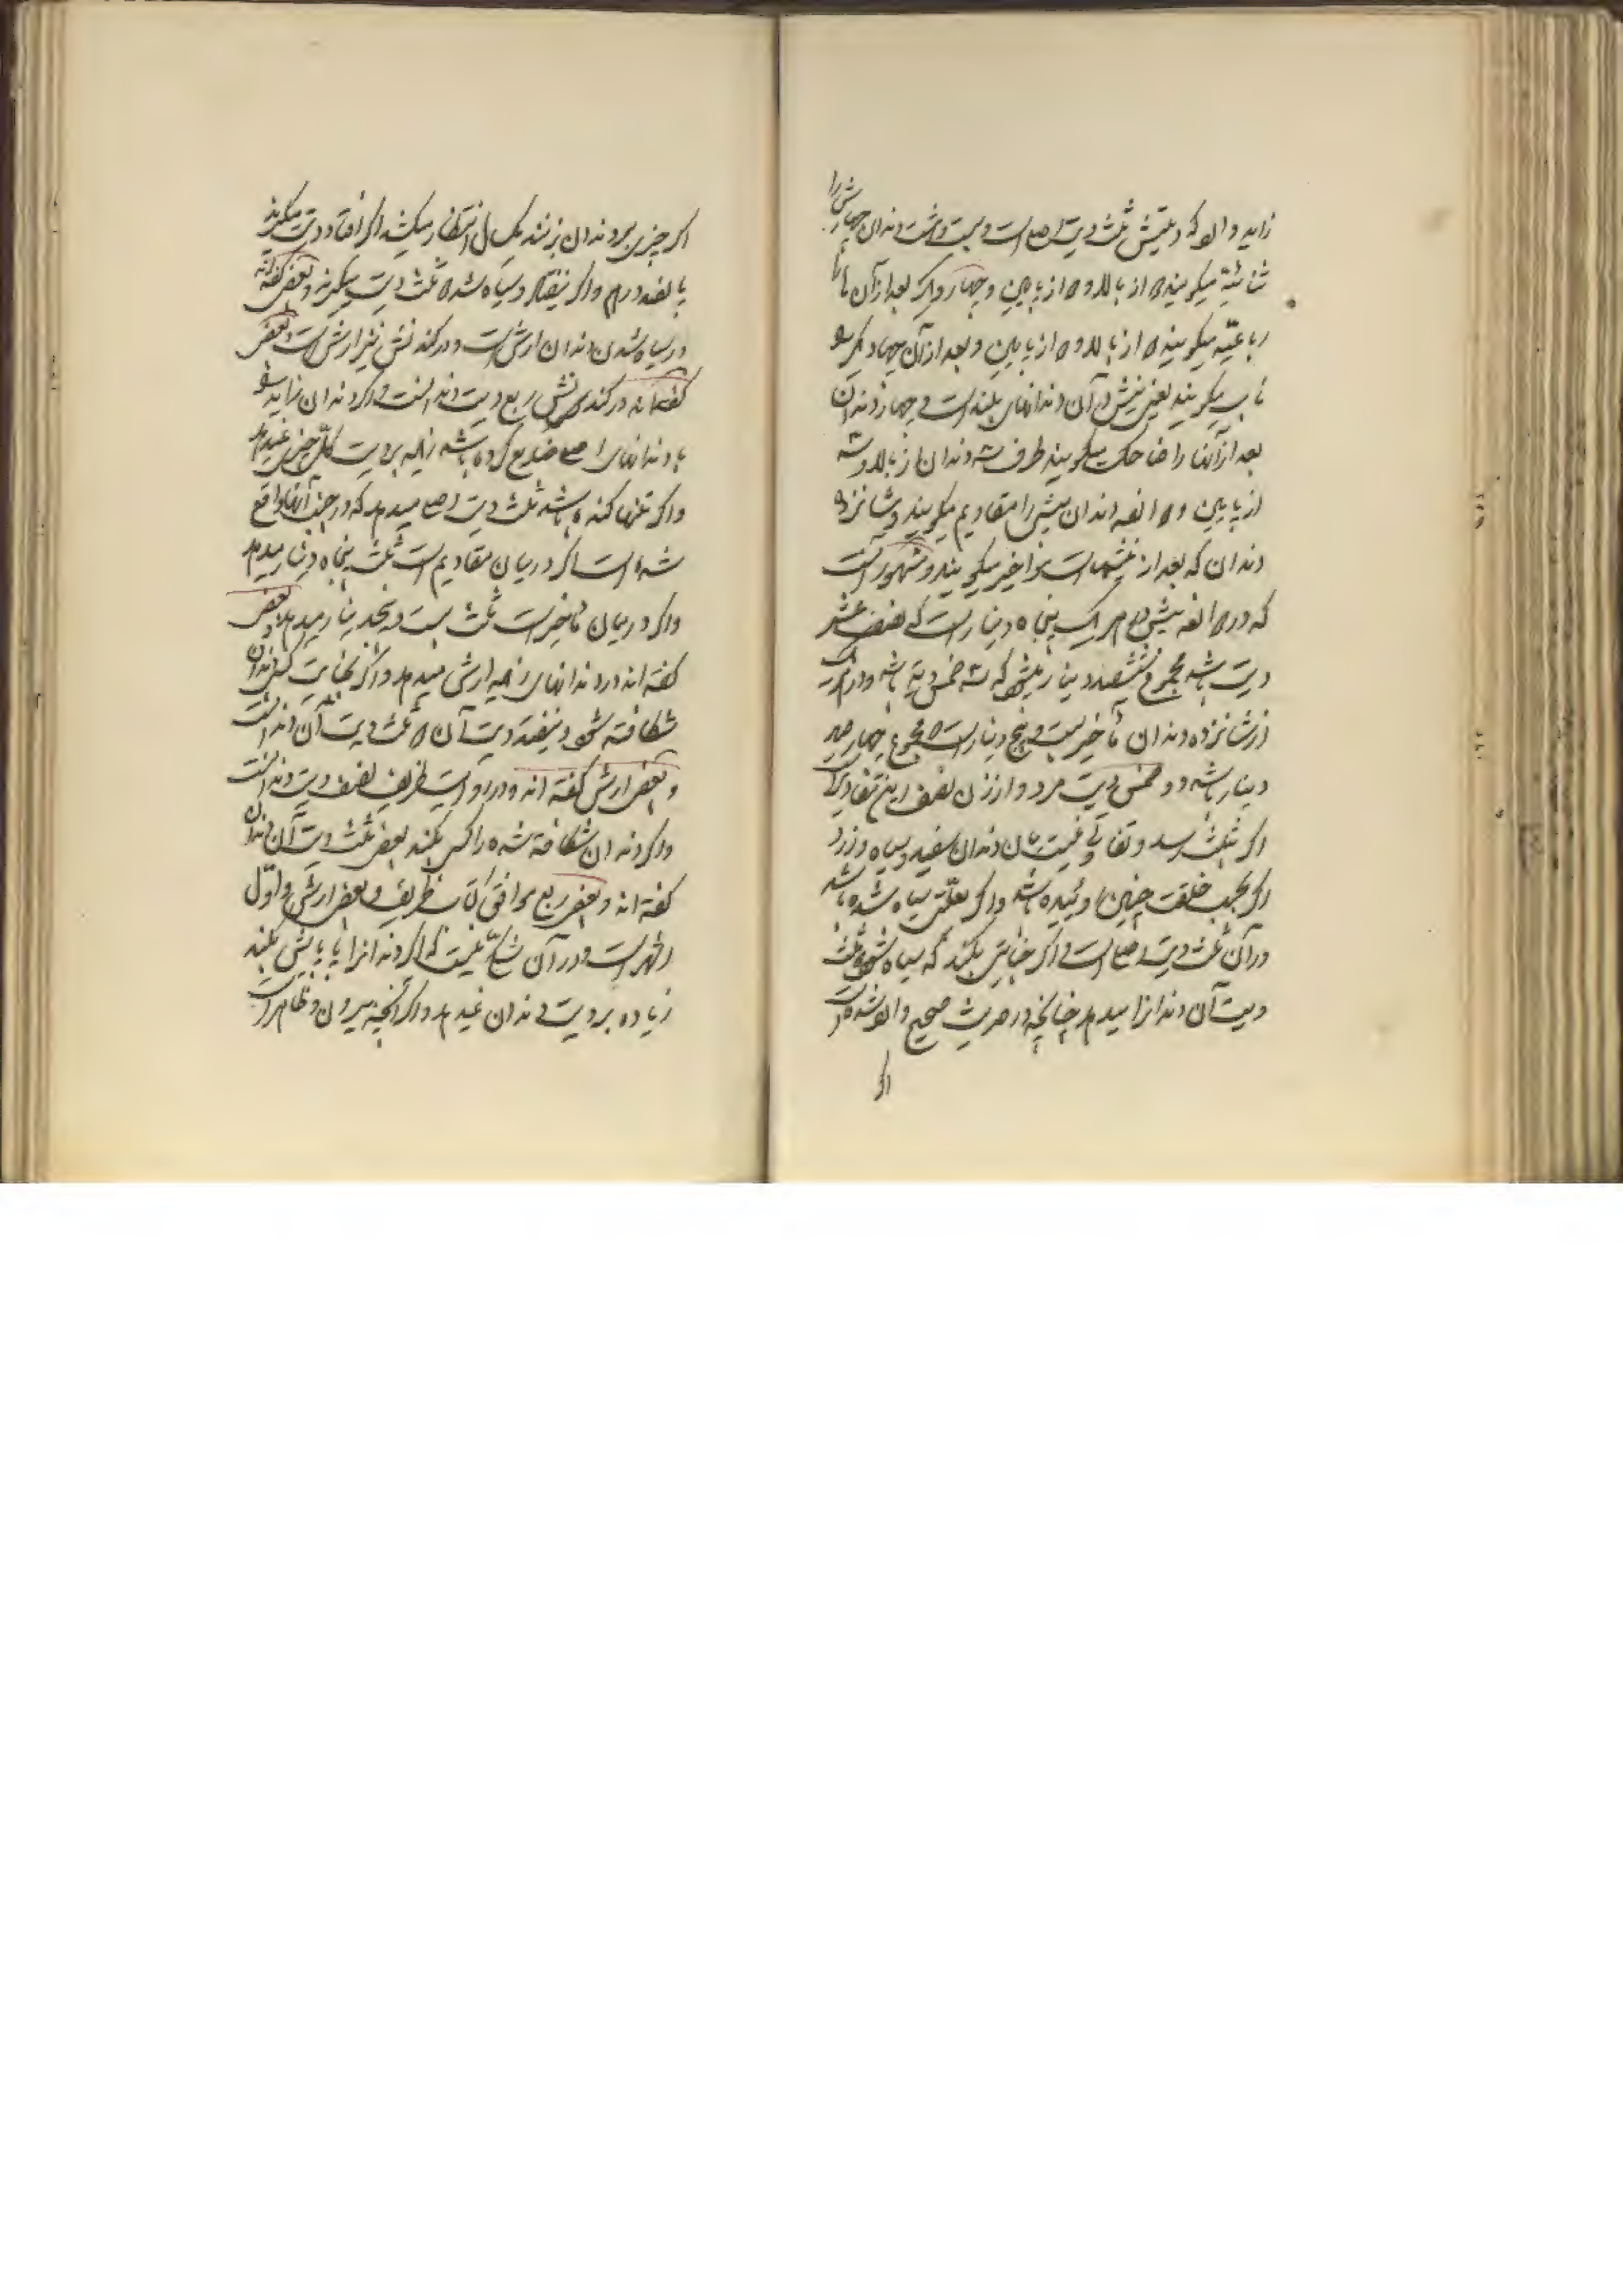 زاید والو که دیتش ثلث دیت اصلی است و بیست و هشت دندان چهارش را
ثنائیه میگویند از بالا و از پایین و چهار دیگر بعد از آن
رباعیه میگویند از بالا و از پایین و بعد از آن چهار دیگر
ناب میگویند یعنی نیش و آن دندانهای بلند است و چهار دندان
بعد از آنها را ضاحک میگویند طرف سه دندان از بالا و سه
از پایین و دندان پیش را مقادیم میگویند و شانزده
دندان که بعد از نیشهاست مأخیر میگویند و مشهور آنست
که در پیش در هر یک پنجاه دینار است که نصف عشر
دیت باشد مجموع ششصد دینار میشود که سه خمس دیه باشد و در هر یک
از شانزده دندان مآخیر بیست و پنج دینار است که مجموع چهار صد
دینار باشد دو خمس دیت مرد و از زن نصف این مقادیر است
اگر بثلث رسد و تفاوتی نیست میان دندان سفید و سیاه و زرد
اگر بحسب خلقت چنین روئیده باشد و اگر بعلتی سیاه شده باشد
در آن ثلث دیت اصلی است و اگر جنایتی بکند که سیاه شود دو ثلث
دیت آن دندانرا میدهد چنانچه در حدیث صحیح وارد شده است
اگر
اگر چیزی بر دندان بزنند یک سال انتظار میکشند اگر افتاد دیت میگیرند
پانصد درهم و اگر نیفتاد و سیاه شد دو ثلث دیت میگیرند و بعضی گفته‌اند
در سیاه شدن دندان ارش است و در کندنش نیز ارش است و بعضی
گفته‌اند در کندنش ربع دیت دندانست و اگر دندان زاید
با دندانهای اصلی ضایع کرده باشد زیاده بر دیت کل چیزی نمیدهد
و اگر تنها کنده باشد ثلث دیت اصلی میدهد که در جنب آنها واقع
شده است اگر در میان مقادیم است ثلث پنجاه دینار میدهد
و اگر در میان مآخیر است ثلث بیست و پنج دینار میدهد و بعضی
گفته‌اند در دندانهای زاید ارش میدهد و اگر بجنایت کسی دندان
شکافته شود و نیفتد دیت آن دو ثلث دیت آن دندانست
و بعضی ارش گفته‌اند و در روایت ظریف نصف دیت دندانست
و اگر دندان شکافته شده را کسی بکند بعضی ثلث دیت آن دندان
گفته‌اند و بعضی ربع موافق کتاب ظریف و بعضی ارش و اول
اشهر است و در آن شکی نیست که اگر دندانرا با بنایش بکند
زیاده بر دیت دندان نمیدهد و اگر آنچه بیرون و ظاهر است